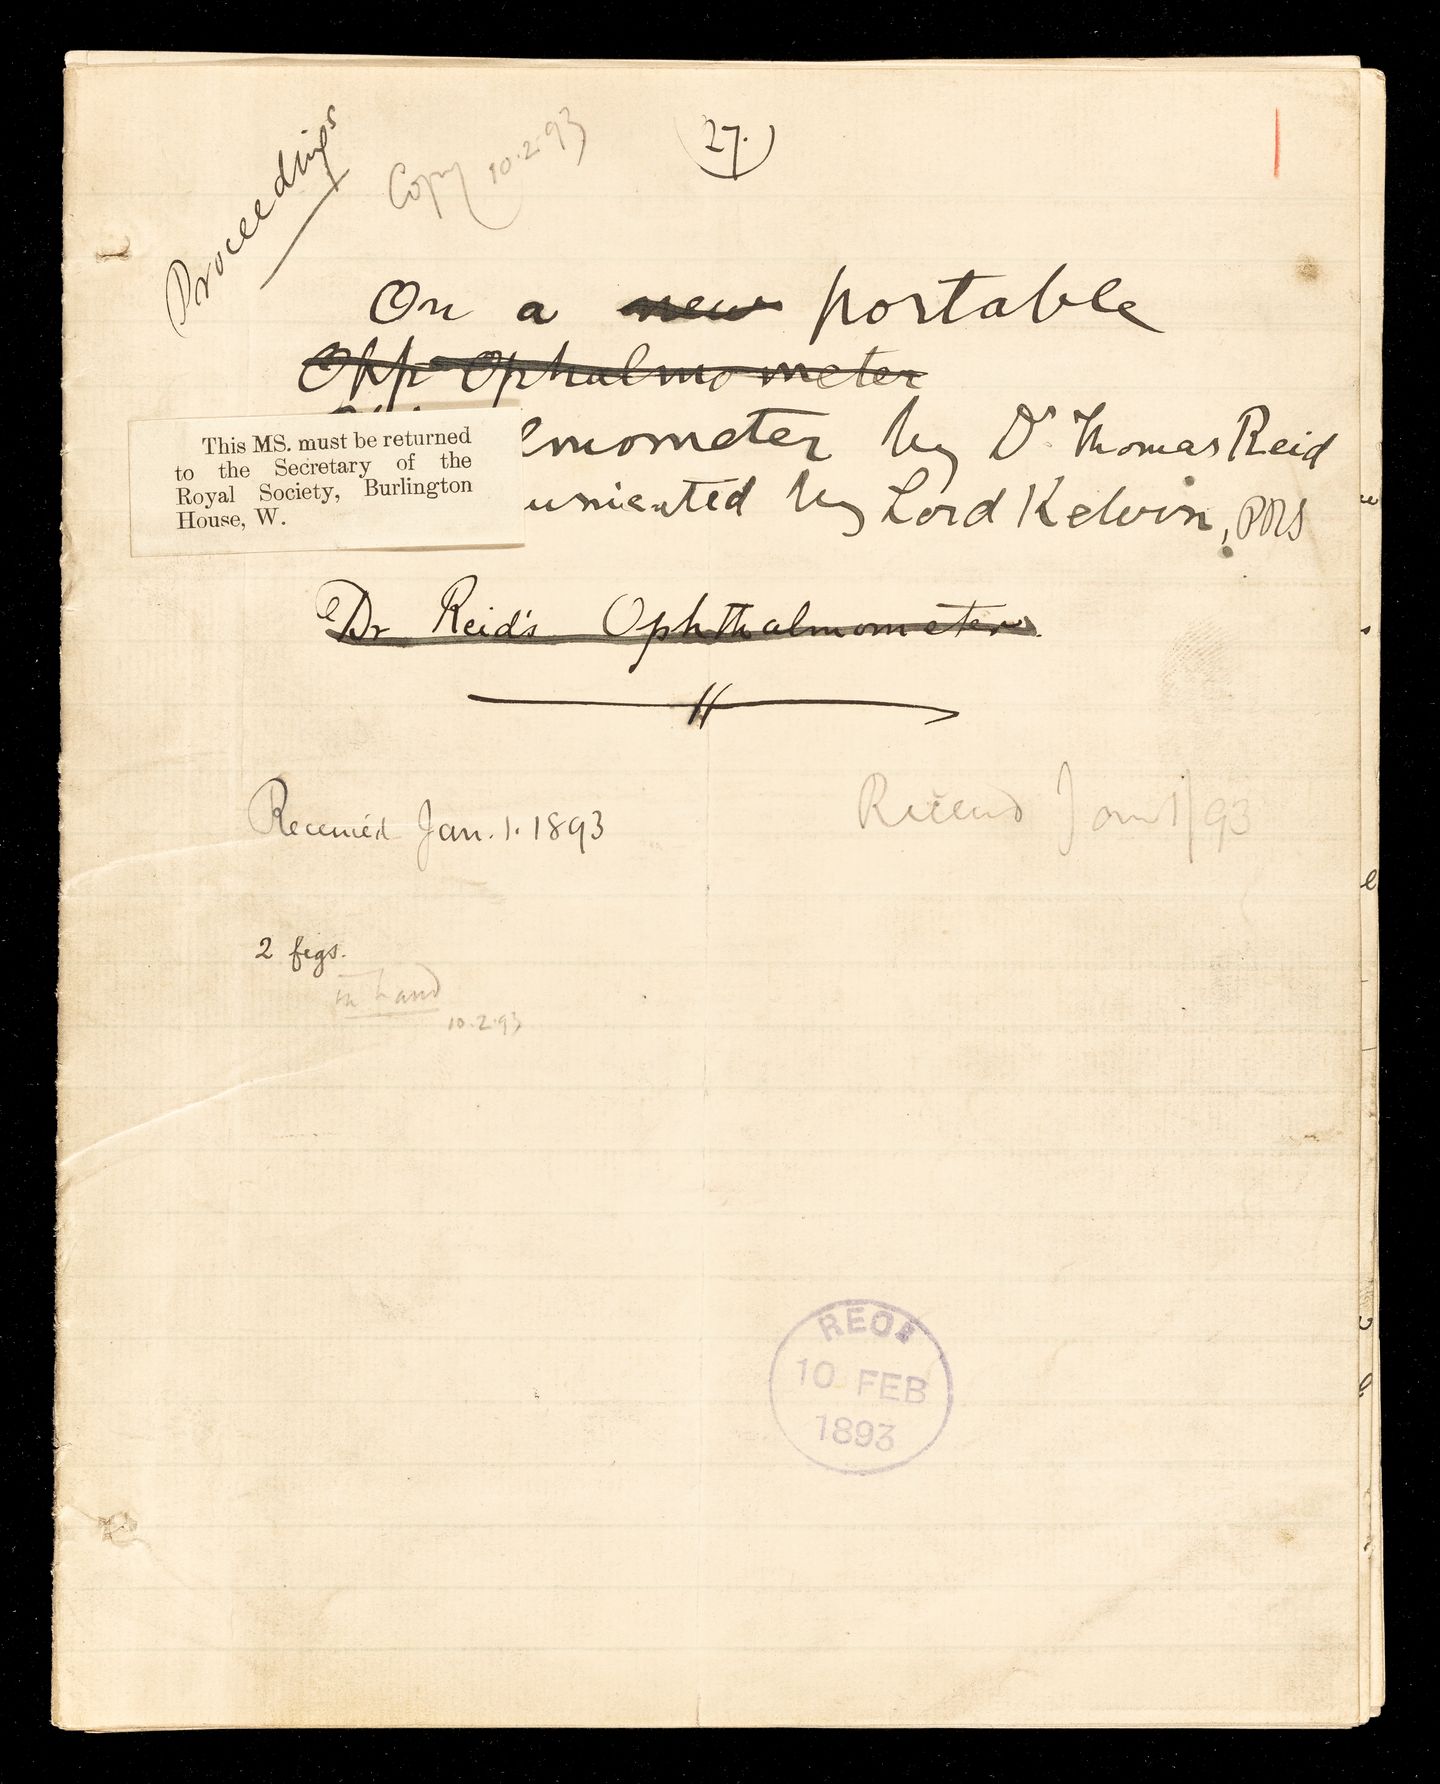 Proceedings
Copy 10.2.93
(27.)
On a new portable
Oph Ophalmometer
lmometer by Dr Thomas Reid
unicated by Lord Kelvin, PRS
This MS. must be returned
to the Secretary of the
Royal Society, Burlington
House, W.
Dr Reid's Ophthalmometer.
Received Jan. 1. 1893
Received Jan 1/93
2 figs.
in hand
10.2.93
10 FEB
1893